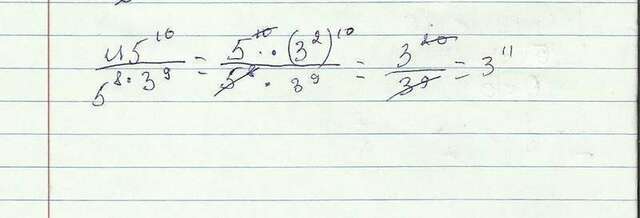 45^10 / 5^8 · 3^9 = 5^10 · · (3^2)^10 / 5^8 · 3^9 = 3^20 / 3^9 = 3^11